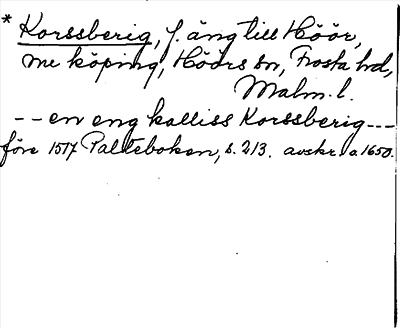 * Korssberig, f. äng till Höör,
me köping, Höörs sn, Frosta hd,
Malm. l.
-- en eng kalliss Korssberig ---
före 1517 Palteboken, s. 213. avskr. a. 1650.